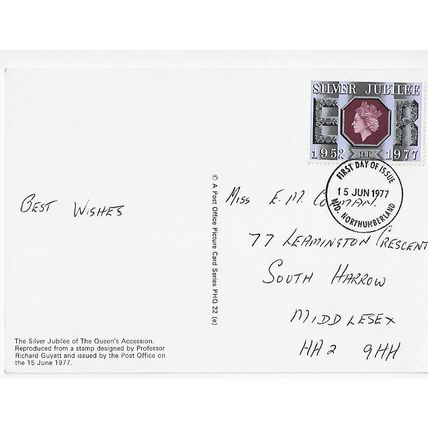 SILVER JUBILEE
E R
1952 9P 1977
FIRST DAY OF ISSUE
15 JUN 1977
NORTHUMBERLAND
© A Post Office Picture Card Series PHQ 22 (e)
BEST WISHES
MISS E. M.
77 LEAMINGTON CRESCENT
SOUTH HARROW
MIDDLESEX
HA2 9HH
The Silver Jubilee of The Queen's Accession.
Reproduced from a stamp designed by Professor
Richard Guyatt and issued by the Post Office on
the 15 June 1977.